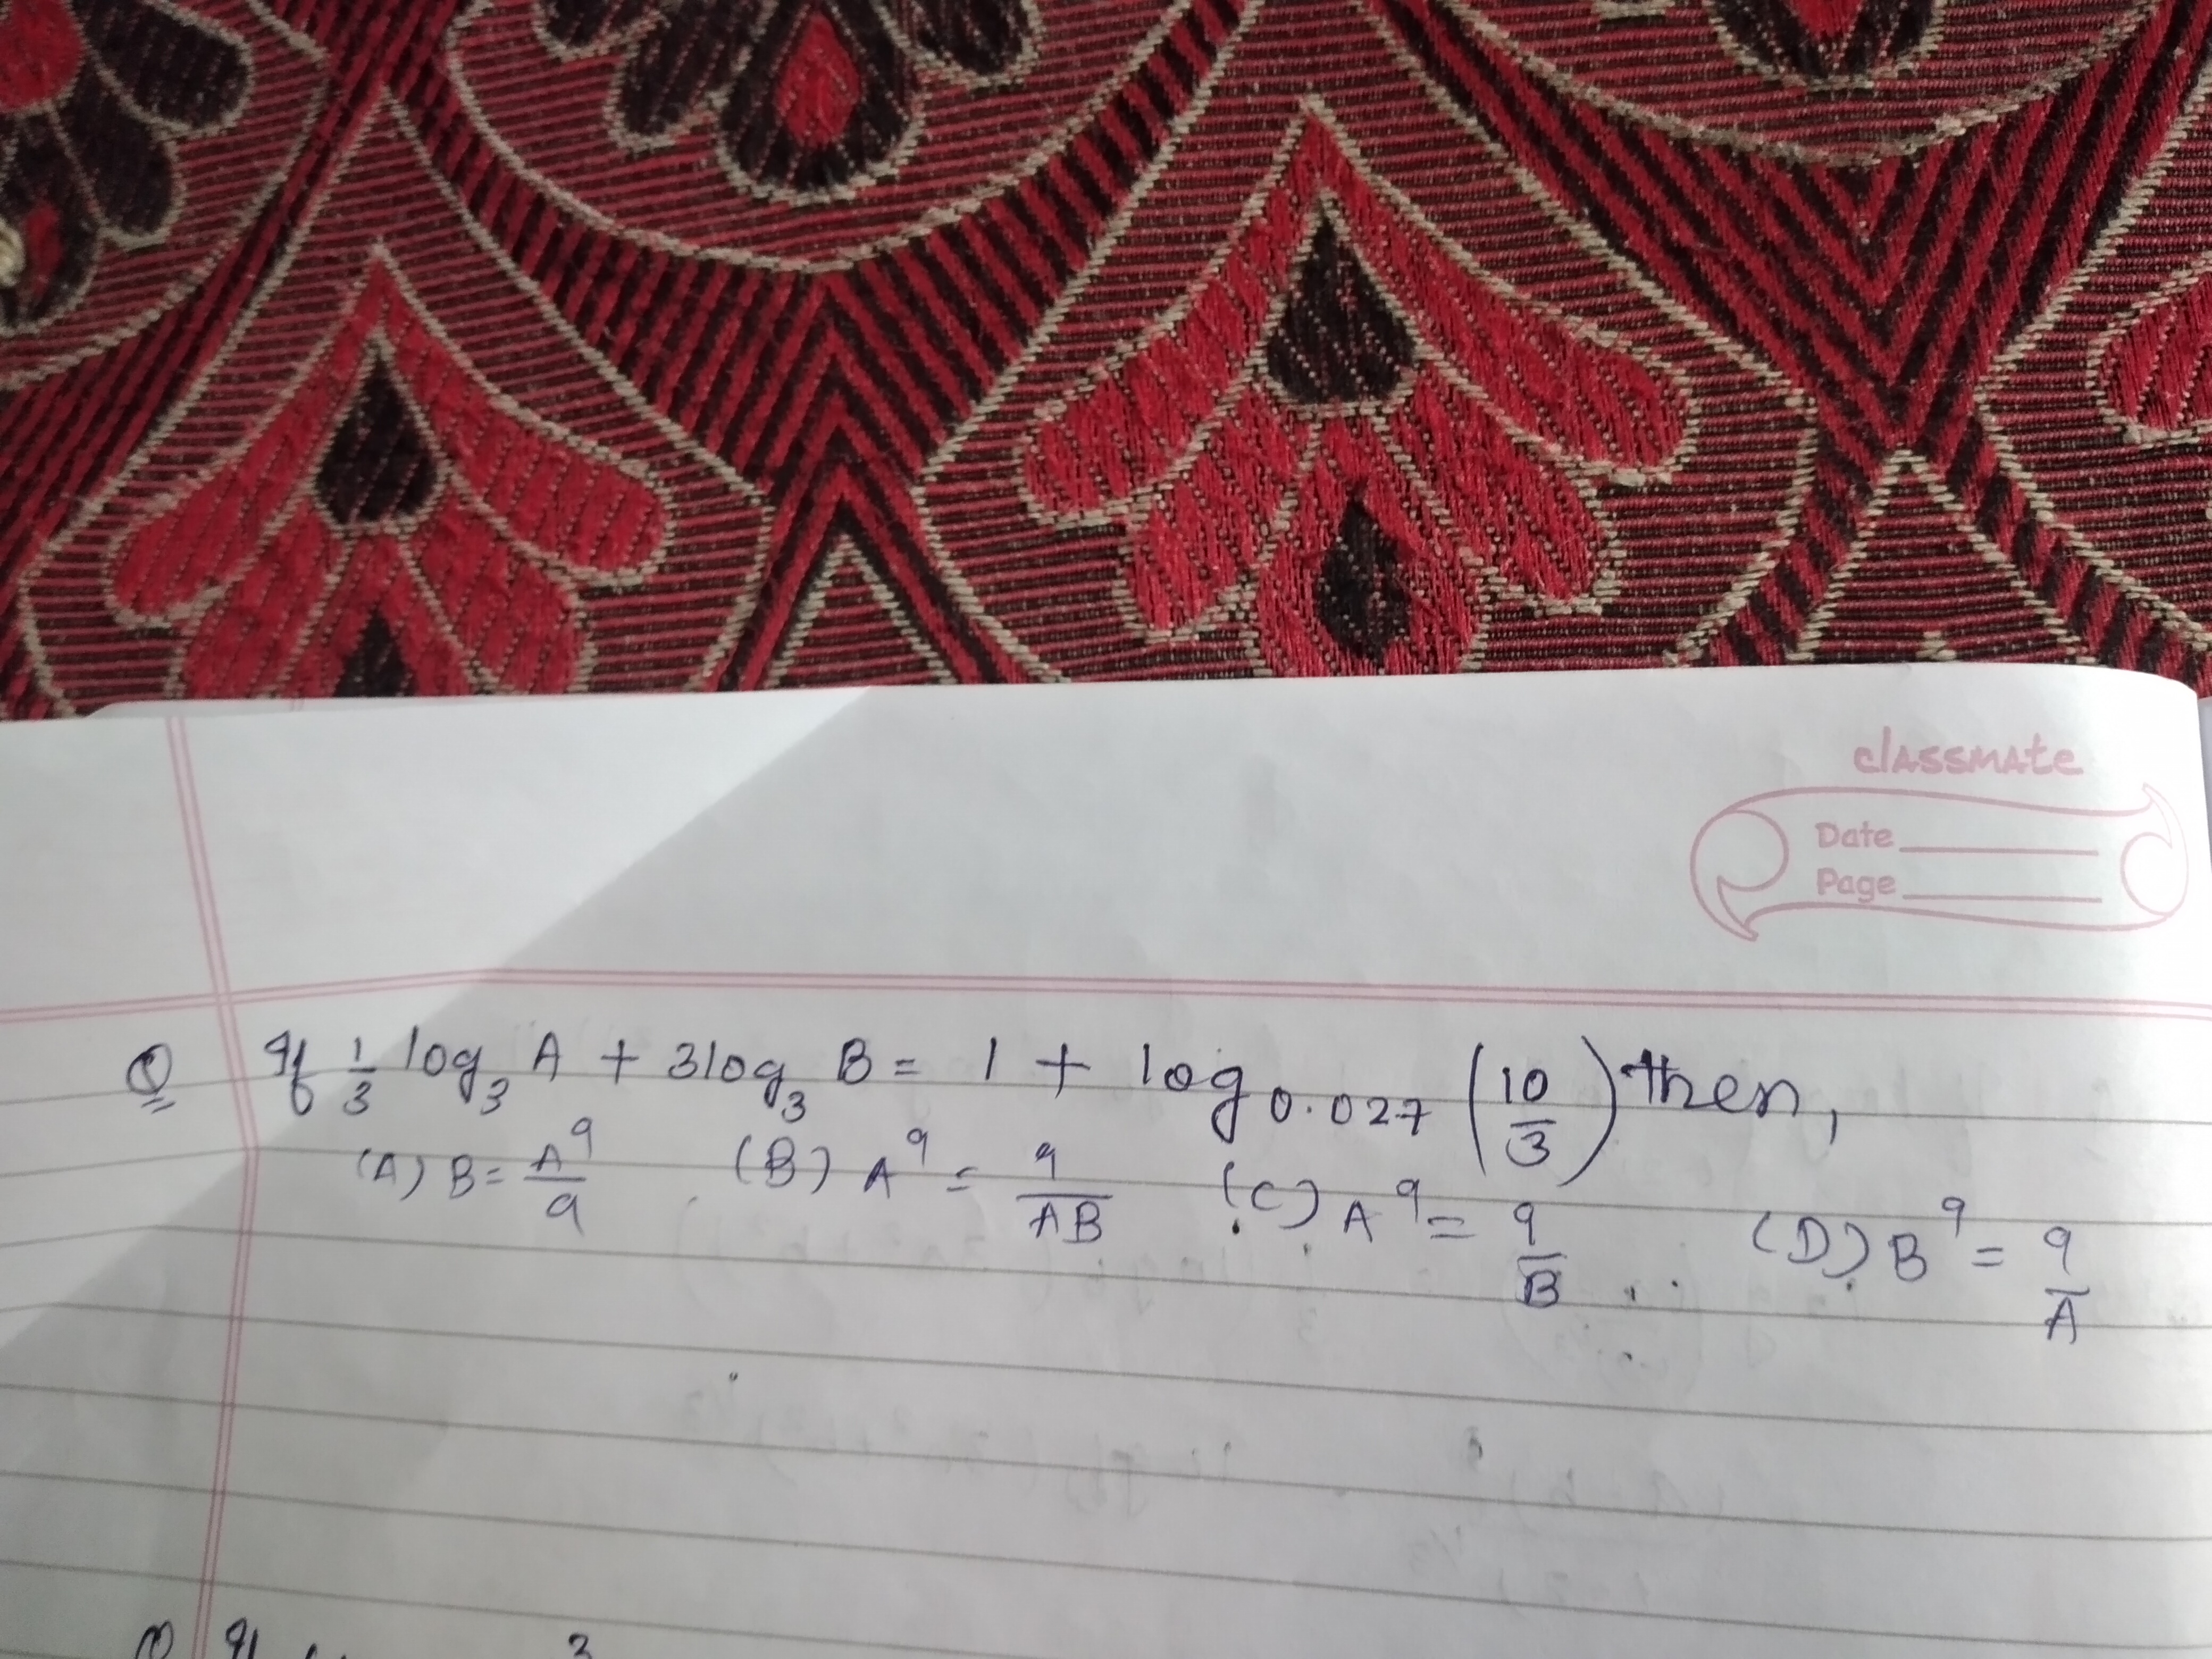 classmate
Date
Page
Q If 1/3 log₃ A + 3log₃ B = 1 + log₀.₀₂₇ (10/3) then,
(A) B = A⁹/9 (B) A⁹ = 9/AB (C) A⁹ = 9/B (D) B⁹ = 9/A